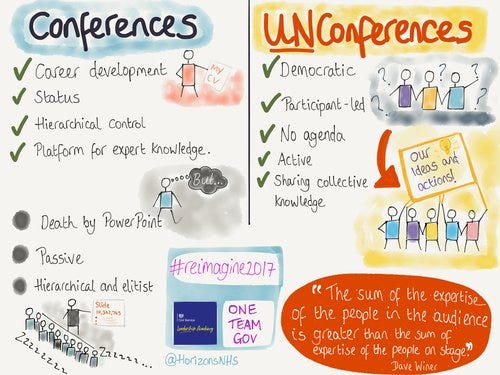 Conferences
Career development
MY
CV
Status
Hierarchical control
Platform for expert knowledge.
But...
Death by PowerPoint
Passive
Hierarchical and elitist
Slide
Zzzzzzzz...
zzzzz...
#reimagine2017
Civil Service
Leadership Academy
ONE
TEAM
GOV
@HorizonsNHS
UNConferences
Democratic
Participant-led
No agenda
Active
Sharing collective
knowledge
? ? ? ?
Our
Ideas and
actions!
"The sum of the expertise
of the people in the audience
is greater than the sum of
expertise of the people on stage."
Dave Winer